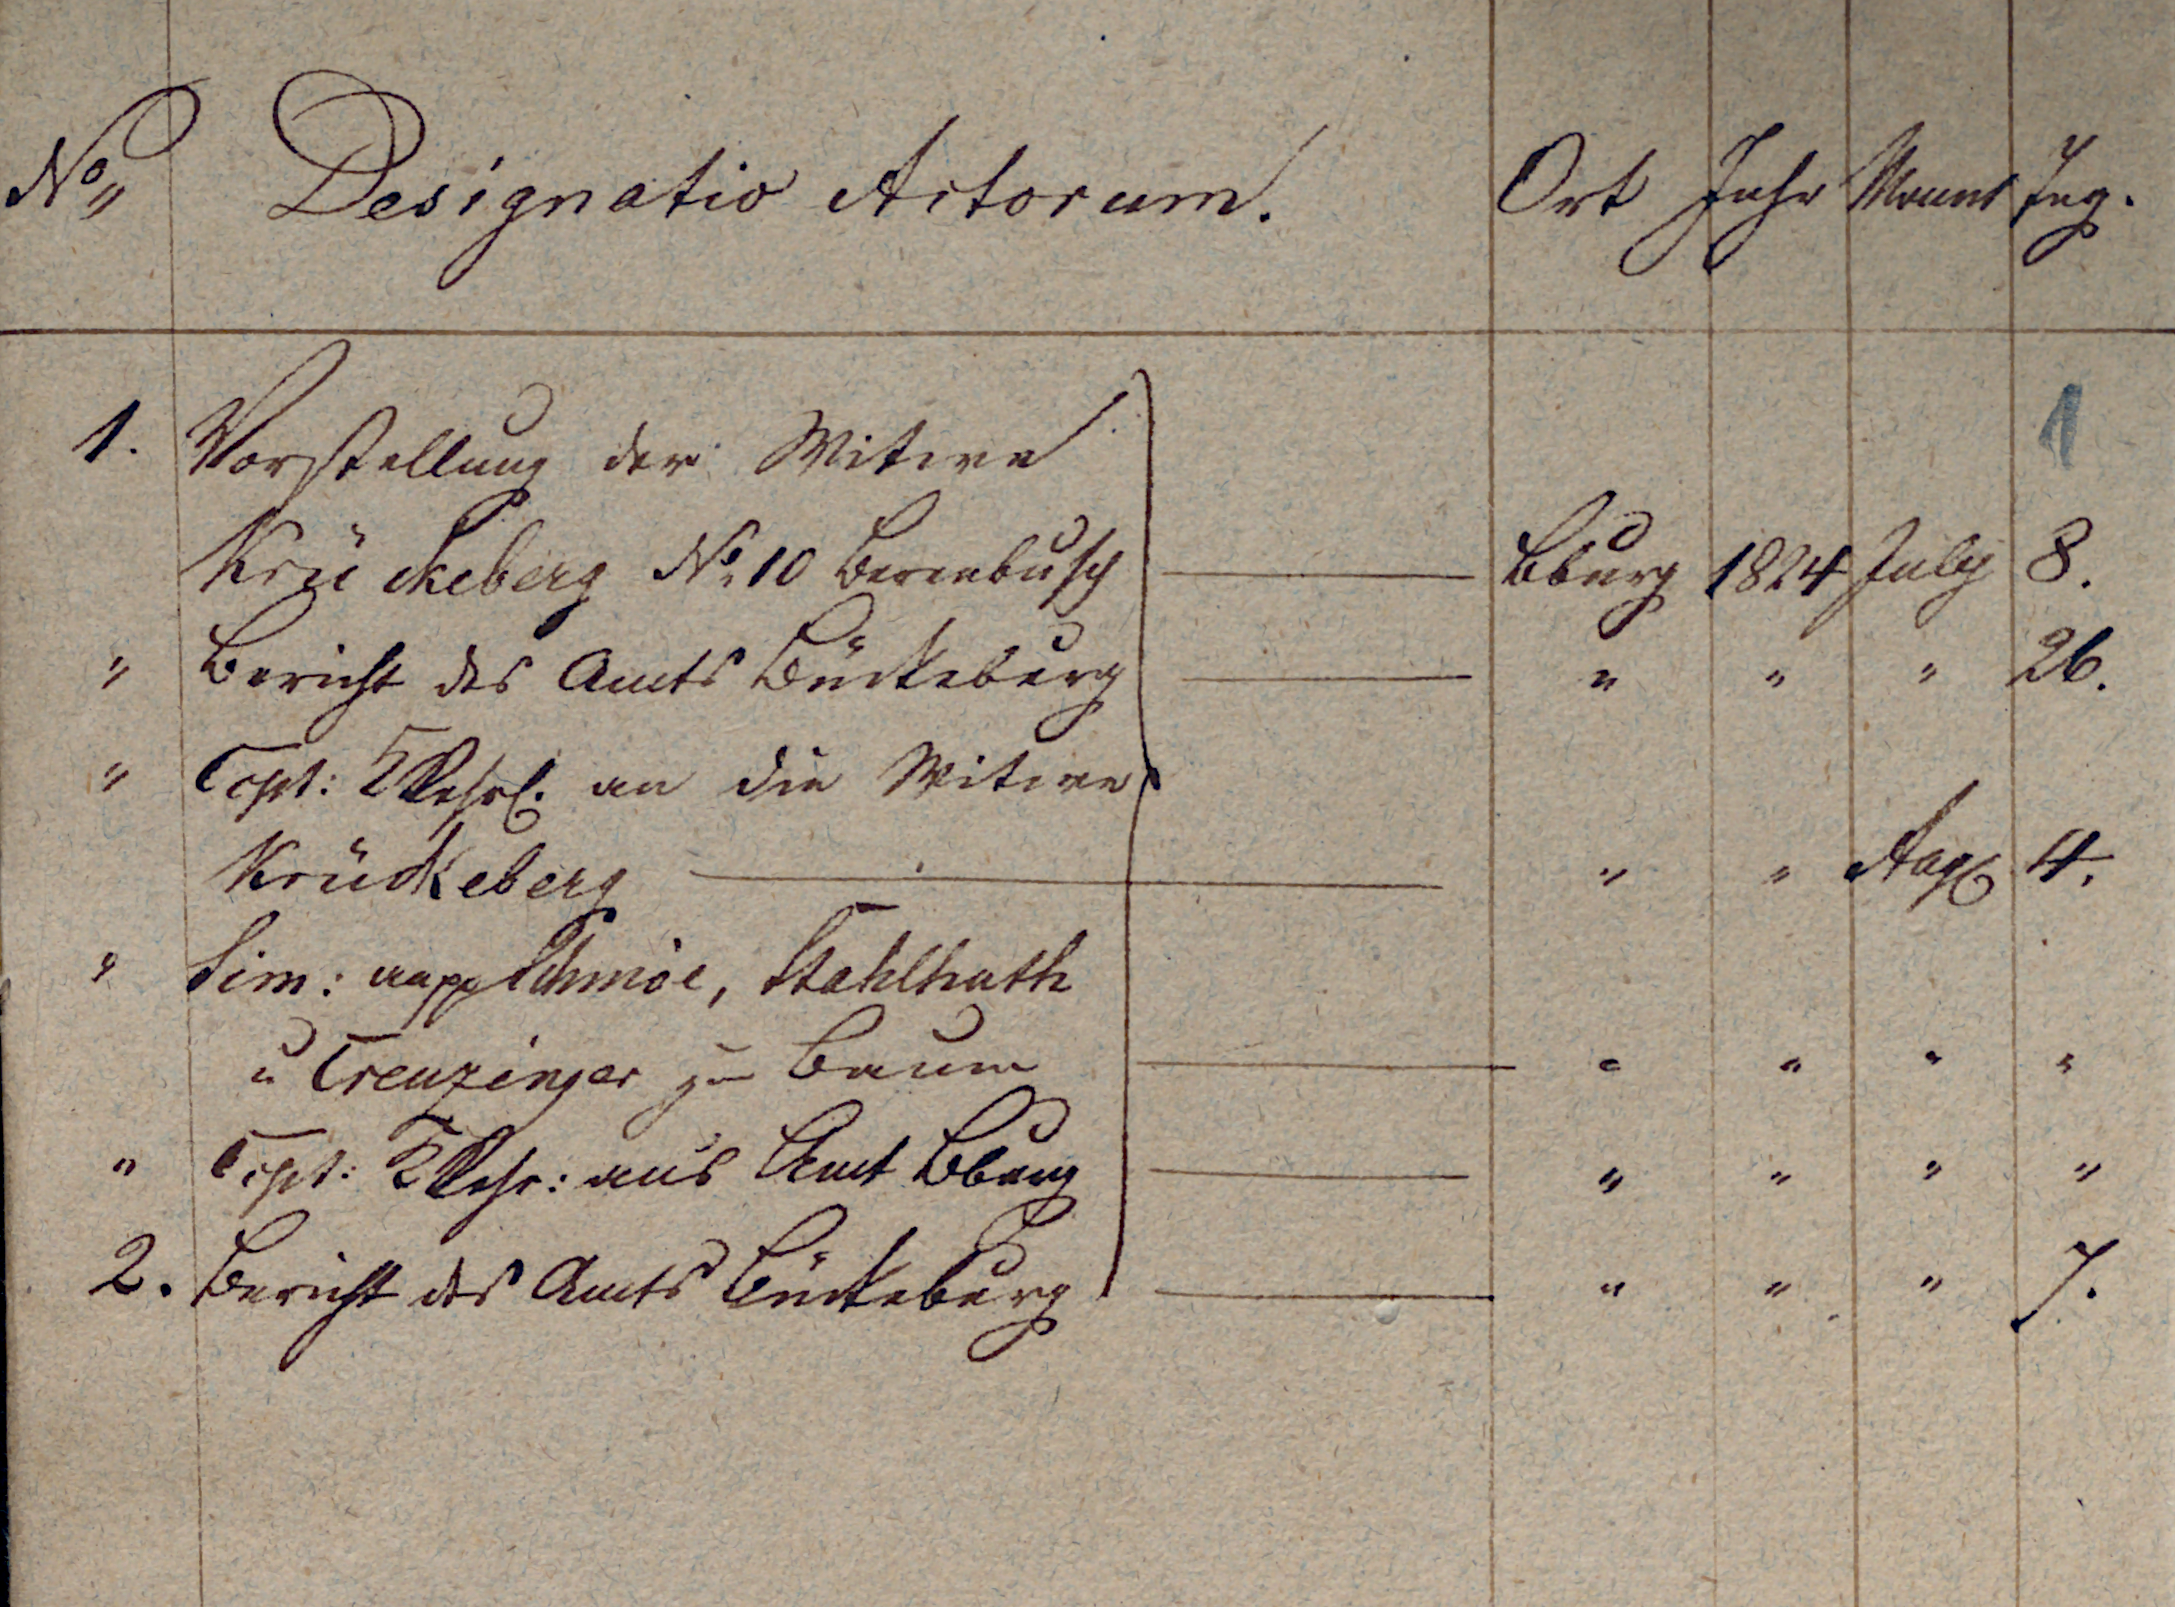 No Designatio Actorum. Ort Jahr Monat Tag.
1
1. Vorstellung der Witwe
Krückeberg No. 10 Berenbusch Bburg 1824 July 8.
" Bericht des Amts Bückeburg " " " 26.
" Cpt: an die Witwe
Krückeberg " " Aug 4.
" Sim: Schmöe, Stahlhuth
u Creuzinger zu Baum " " " "
" Cpt: ans Amt Bburg " " " "
2. Bericht des Amts Bückeburg " " " 7.